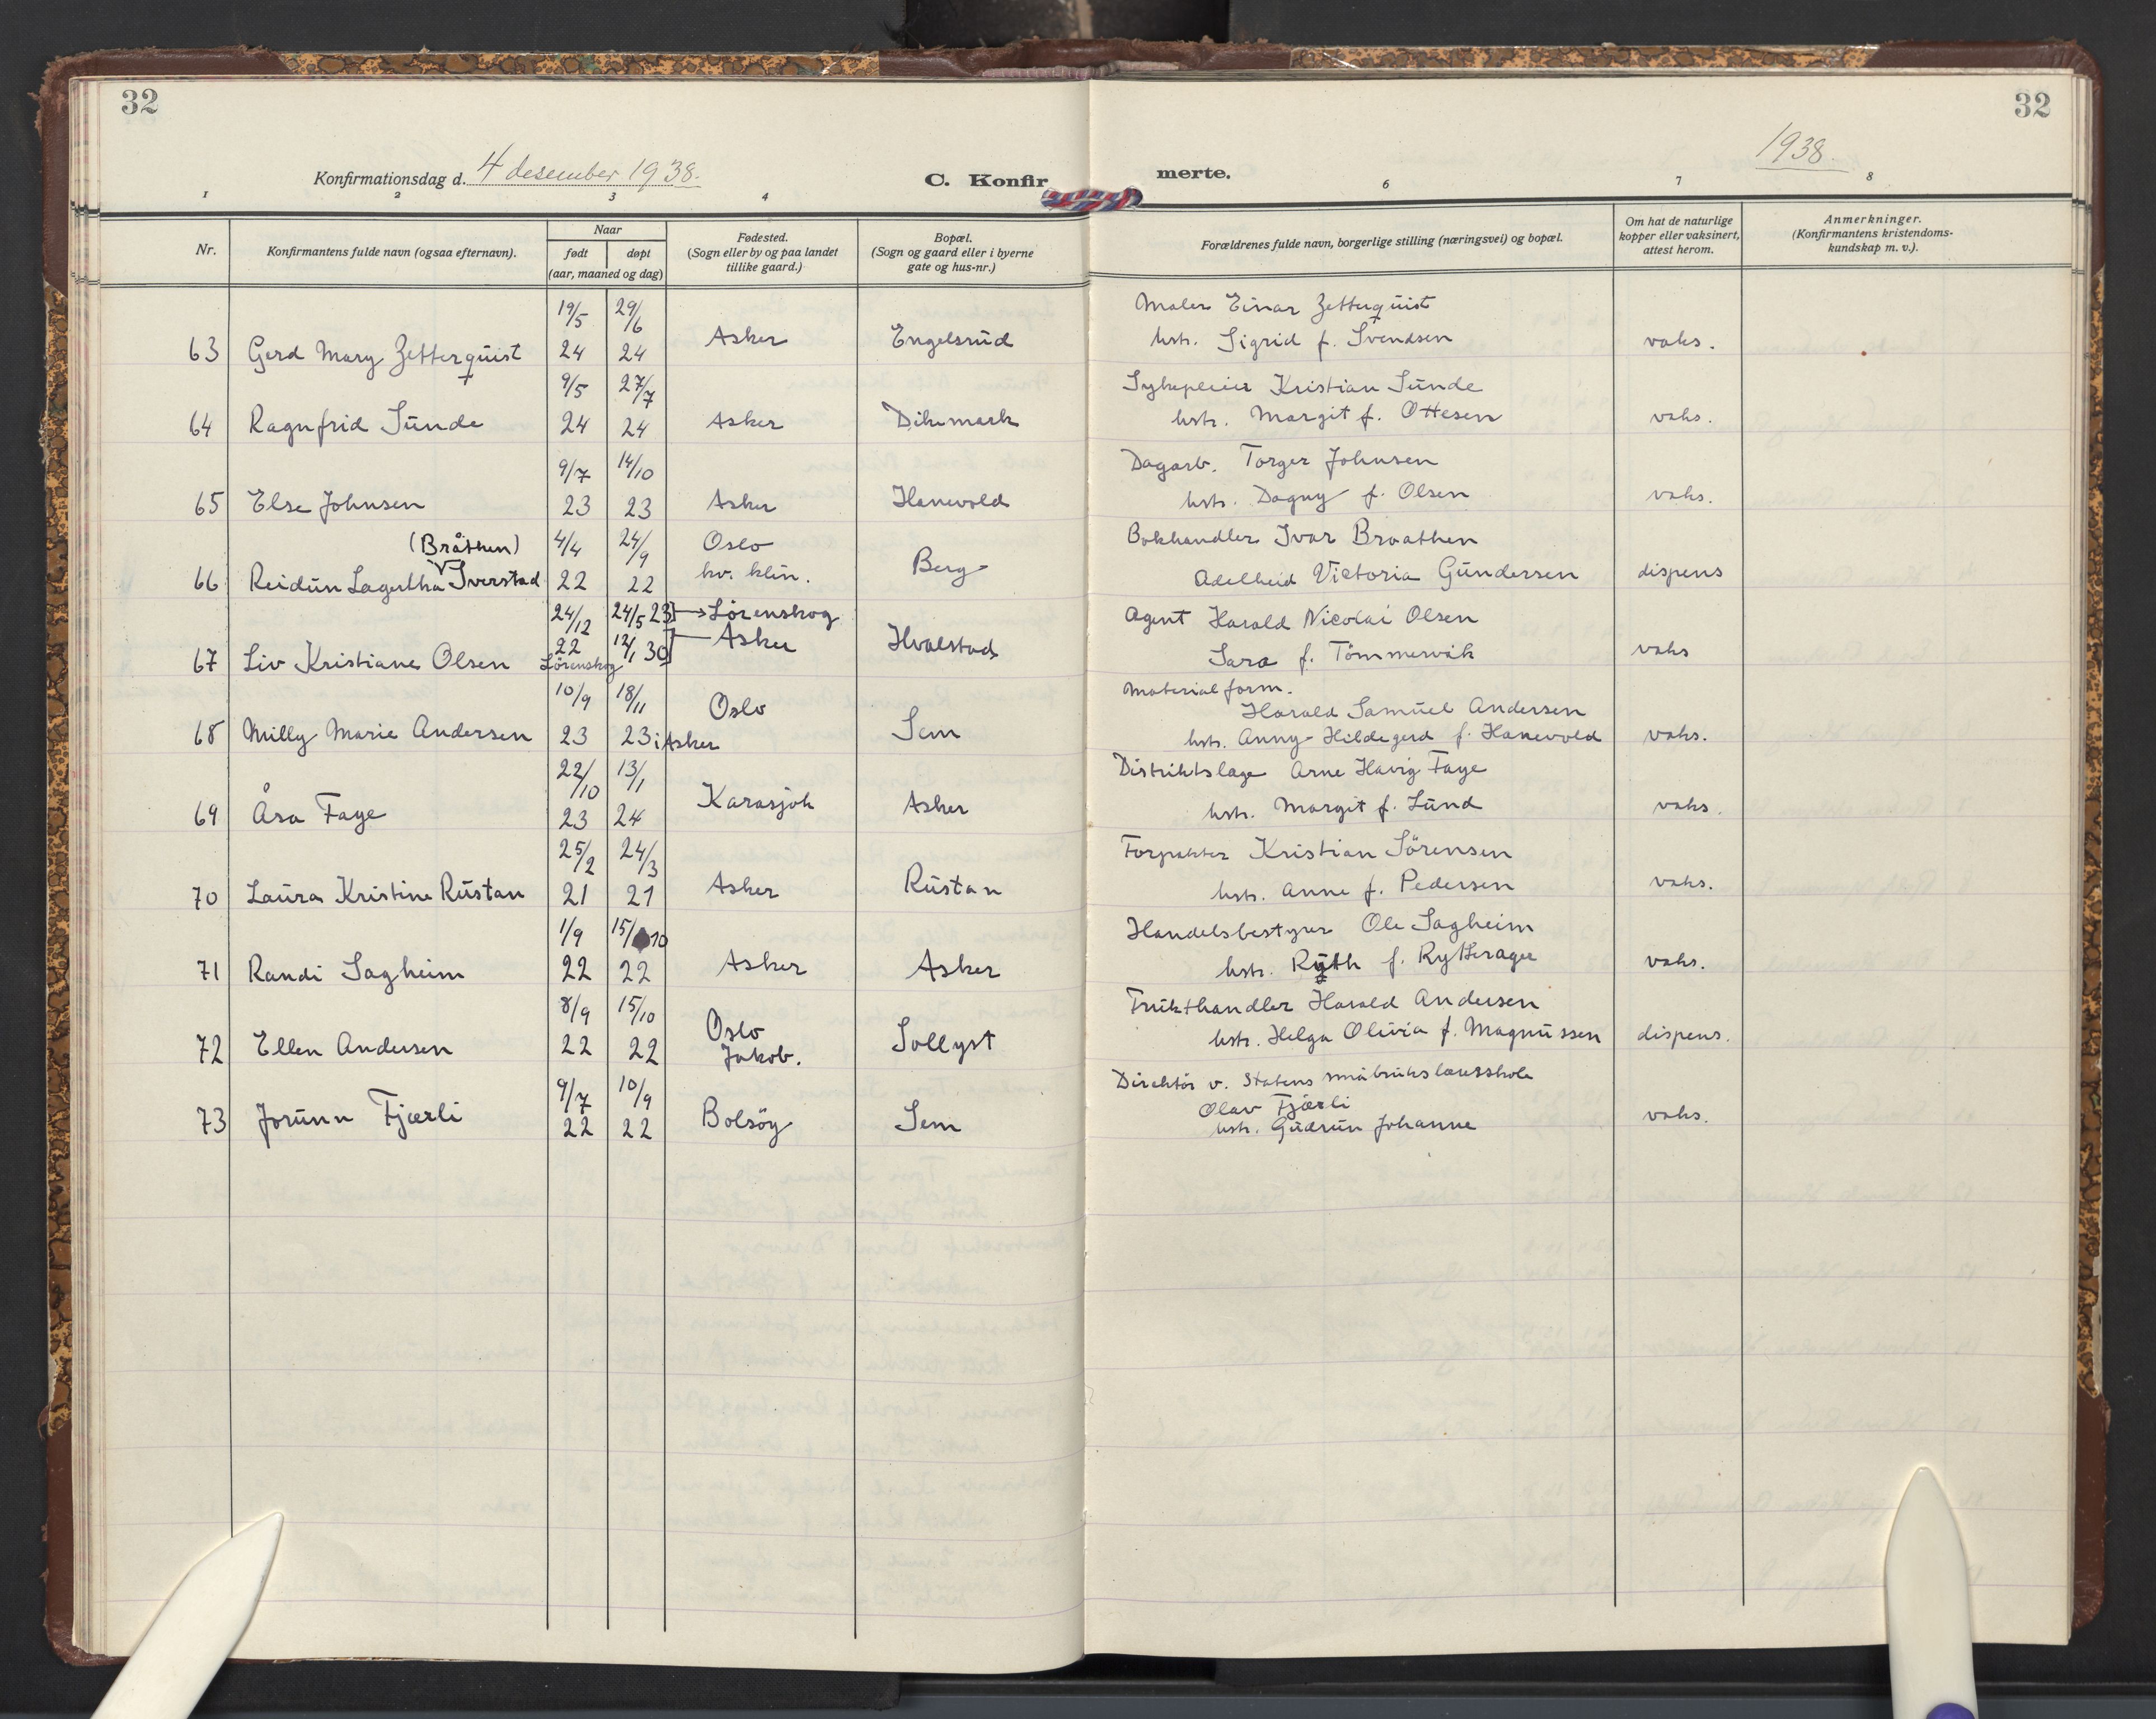 32
32
Konfirmationsdag d. 4 desember 1938.
C. Konfir
merte.
1938.
1 2 3 4 6 7 8
Nr.
Konfirmantens fulde navn (ogsaa efternavn).
Naar
født døpt
(aar, maaned og dag)
Fødested.
(Sogn eller by og paa landet
tillike gaard.)
Bopæl.
(Sogn og gaard eller i byerne
gate og hus-nr.)
Forældrenes fulde navn, borgerlige stilling (næringsvei) og bopæl.
Om hat de naturlige
kopper eller vaksinert,
attest herom.
Anmerkninger.
(Konfirmantens kristendoms-
kundskap m. v.).
19/5 29/6 Maler Einar Zetterquist
63 Gerd Mary Zetterquist 24 24 Asker Engelsrud hstr. Sigrid f. Svendsen vaks.
9/5 27/7 Sykepleier Kristian Sunde
64 Ragnfrid Sunde 24 24 Asker Dikemark hstr. Margit f. Ottesen vaks.
9/7 14/10 Dagarb. Torger Johnsen
65 Else Johnsen 23 23 Asker Hanevold hstr. Dagny f. Olsen vaks.
(Bråthen) 4/4 24/9 Oslo Bokhandler Ivar Braathen
66 Reidun Lagertha Sverstad 22 22 kv. klin. Berg Adelheid Victoria Gundersen dispens
24/12 24/5 23 → Lörenskog Agent Harald Nicolai Olsen
22 12/1 30 Asker
67 Liv Kristiane Olsen Lörenskog Hvalstad Sara f. Tömmervik vaks
10/9 18/11 Oslo Materialform.
Harald Samuel Andersen
68 Milly Marie Andersen 23 23 i Asker Sem hstr. Anny Hildegerd f. Hanevold vaks.
22/10 13/1 Distriktslæge Arne Havig Faye
69 Åsa Faye 23 24 Karasjok Asker hstr. Margit f. Lund vaks.
25/2 24/3 Forpakter Kristian Sörensen
70 Laura Kristine Rustan 21 21 Asker Rustan hstr. Anne f. Pedersen vaks.
1/9 15/10 Handelsbestyrer Ole Sagheim
71 Randi Sagheim 22 22 Asker Asker hstr. Ruth f. Rytterager vaks.
8/9 15/10 Oslo Frukthandler Harald Andersen
72 Ellen Andersen 22 22 Jakob. Sollyst hstr. Helga Olivia f. Magnussen dispens.
9/7 10/9 Direktör v. Statens småbrukslærerskole
Olav Fjærli
73 Jorunn Fjærli 22 22 Bolsöy Sem hstr. Gudrun Johanne vaks.